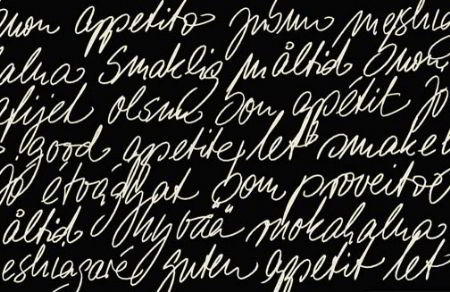 uon appetito jusun meshia
halna Smaklig måltid buon
afijet olsun bon appétit Jó
good appetite, let smakel
Jó étvágyat bom proveitoe
åltid hyvää mokahalua
eshiagaré guten appetit let